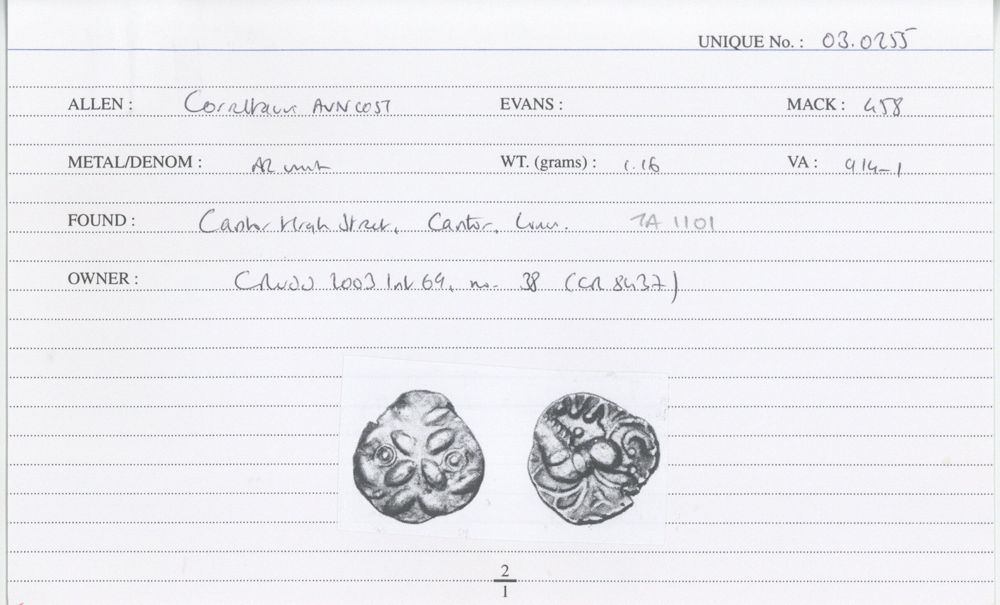 UNIQUE No. : 03.0255
ALLEN : Corieltauvi AVN COST EVANS : MACK : 458
METAL/DENOM : AR unit WT. (grams) : 1.16 VA : 914-1
FOUND : Caistor High Street, Caistor, Lincs. TA 1101
OWNER : 2003 69, no. 38 (CR 8437)
2
1